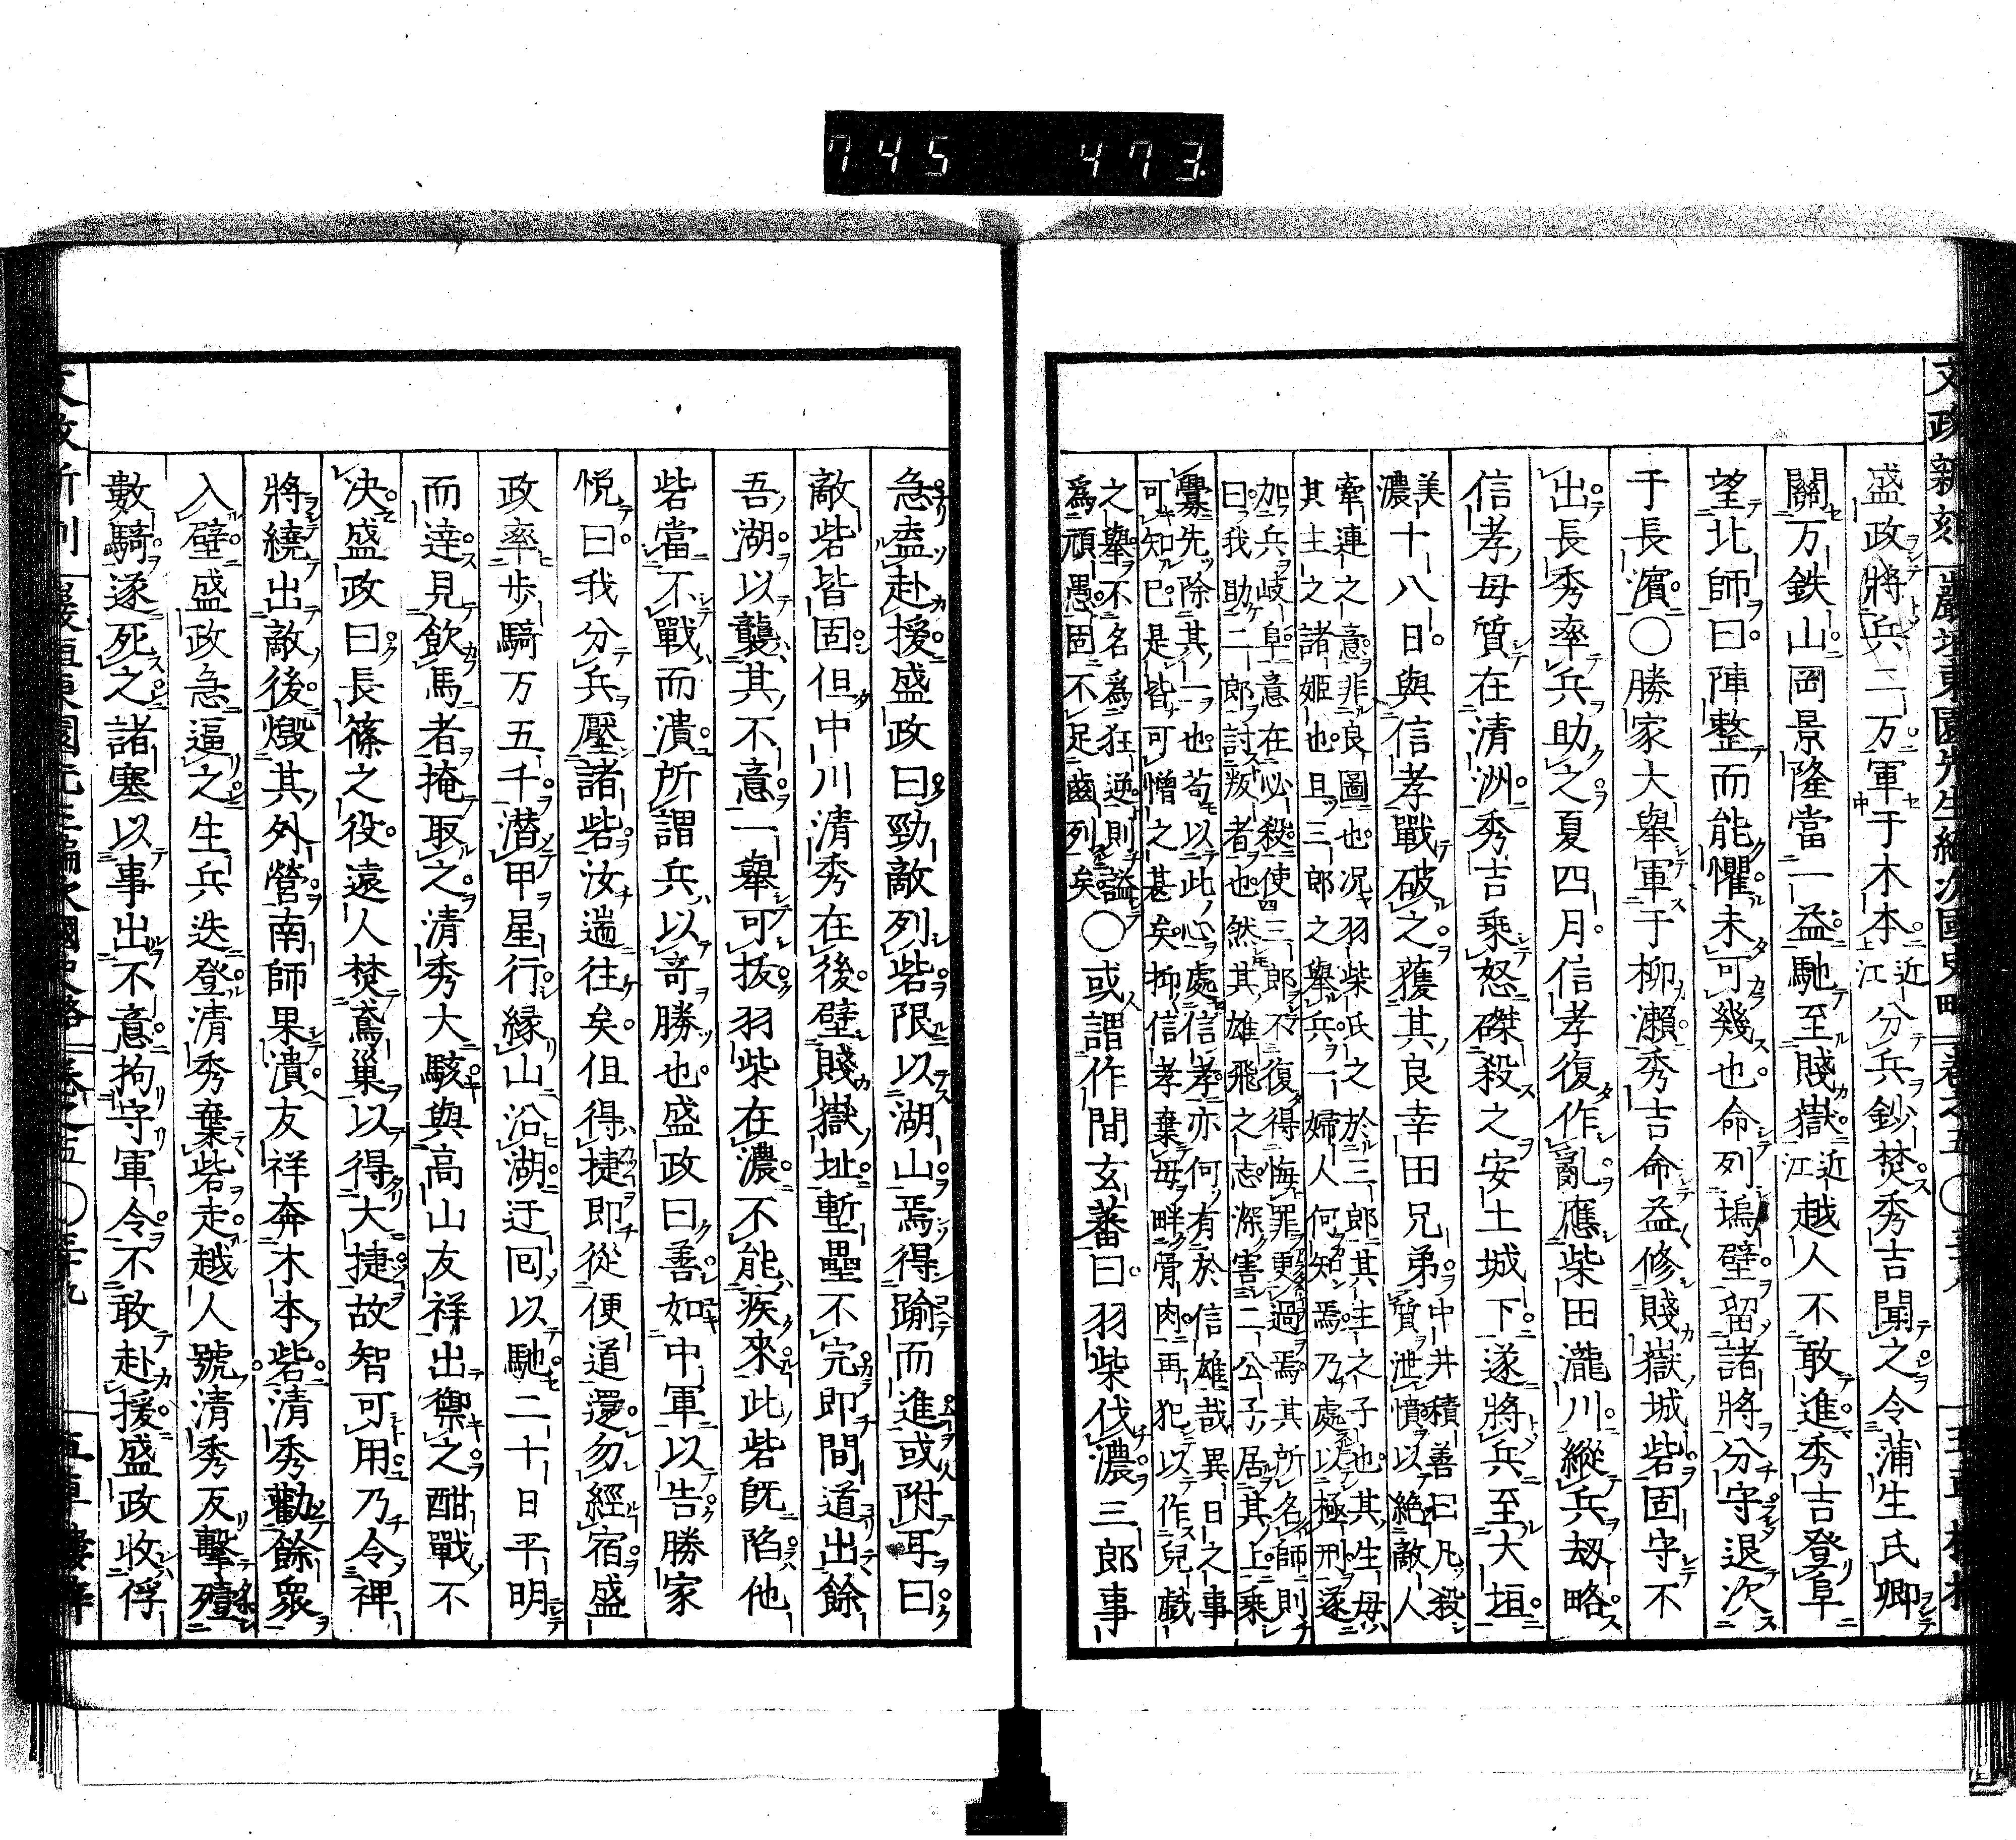 745 473
文政新刻 巖垣東園先生編次國史略 卷之五〇
盛政將兵二万軍于木本近江分兵鈔焚秀吉聞之令蒲生氏卿
關万鉄山岡景隆當一益馳至賤嶽近江越人不敢進秀吉登阜
望北師曰陣整而能懼未可幾也命列塢壁留諸將分守退次
于長濱〇勝家大舉軍于柳瀬秀吉命益修賤嶽城砦固守不
出長秀率兵助之夏四月信孝復作亂應柴田瀧川縱兵刧略
信孝母質在清洲秀吉乘怒磔殺之安土城下遂將兵至大垣
美濃十八日與信孝戰破之獲其良幸田兄弟中井積善曰凡殺質泄憤以絶敵人
牽連之意非良圖也况羽柴氏之於三郎其主之子也其生母
其主之諸姫也且三郎之舉兵一婦人何知焉乃處以極刑遂
加兵岐阜意在必殺使三郎不復得悔罪更過焉其所名師則
曰我助二郎討叛者也然其雄飛之志深害二公子居其上乘
釁先除其一也苟以此心處信孝亦何有於信雄哉異日之事
可知巳是皆可憎之甚矣抑信孝棄母畔骨肉再犯以作兒戲
之舉不名爲狂逆則謚
爲頑愚固不足齒列矣〇或謂作間玄蕃曰羽柴伐濃三郎事
急盍赴援盛政曰勁敵列砦限以湖山焉得踰而進或附耳曰
敵砦皆固但中川清秀在後壁賤嶽址塹壘不完即間道出餘
吾湖以襲其不意一舉可拔羽柴在濃不能疾來此砦旣陷他
砦當不戰而潰所謂兵以奇勝也盛政曰善如中軍以告勝家
悦曰我分兵壓諸砦汝遄往矣但得捷即從便道還勿經宿盛
政率歩騎万五千潜甲星行縁山沿湖迂回以馳二十日平明
而達見飲馬者掩取之清秀大駭與高山友祥出禦之酣戰不
决盛政曰長篠之役遠人焚鳶巢以得大捷故智可用乃令裨
將繞出敵後燬其外營南師果潰友祥奔木本砦清秀勸餘衆
入壁盛政急逼之生兵迭登清秀棄砦走越人號清秀反擊殪
數騎遂死之諸寨以事出不意拘守軍令不敢赴援盛政收俘